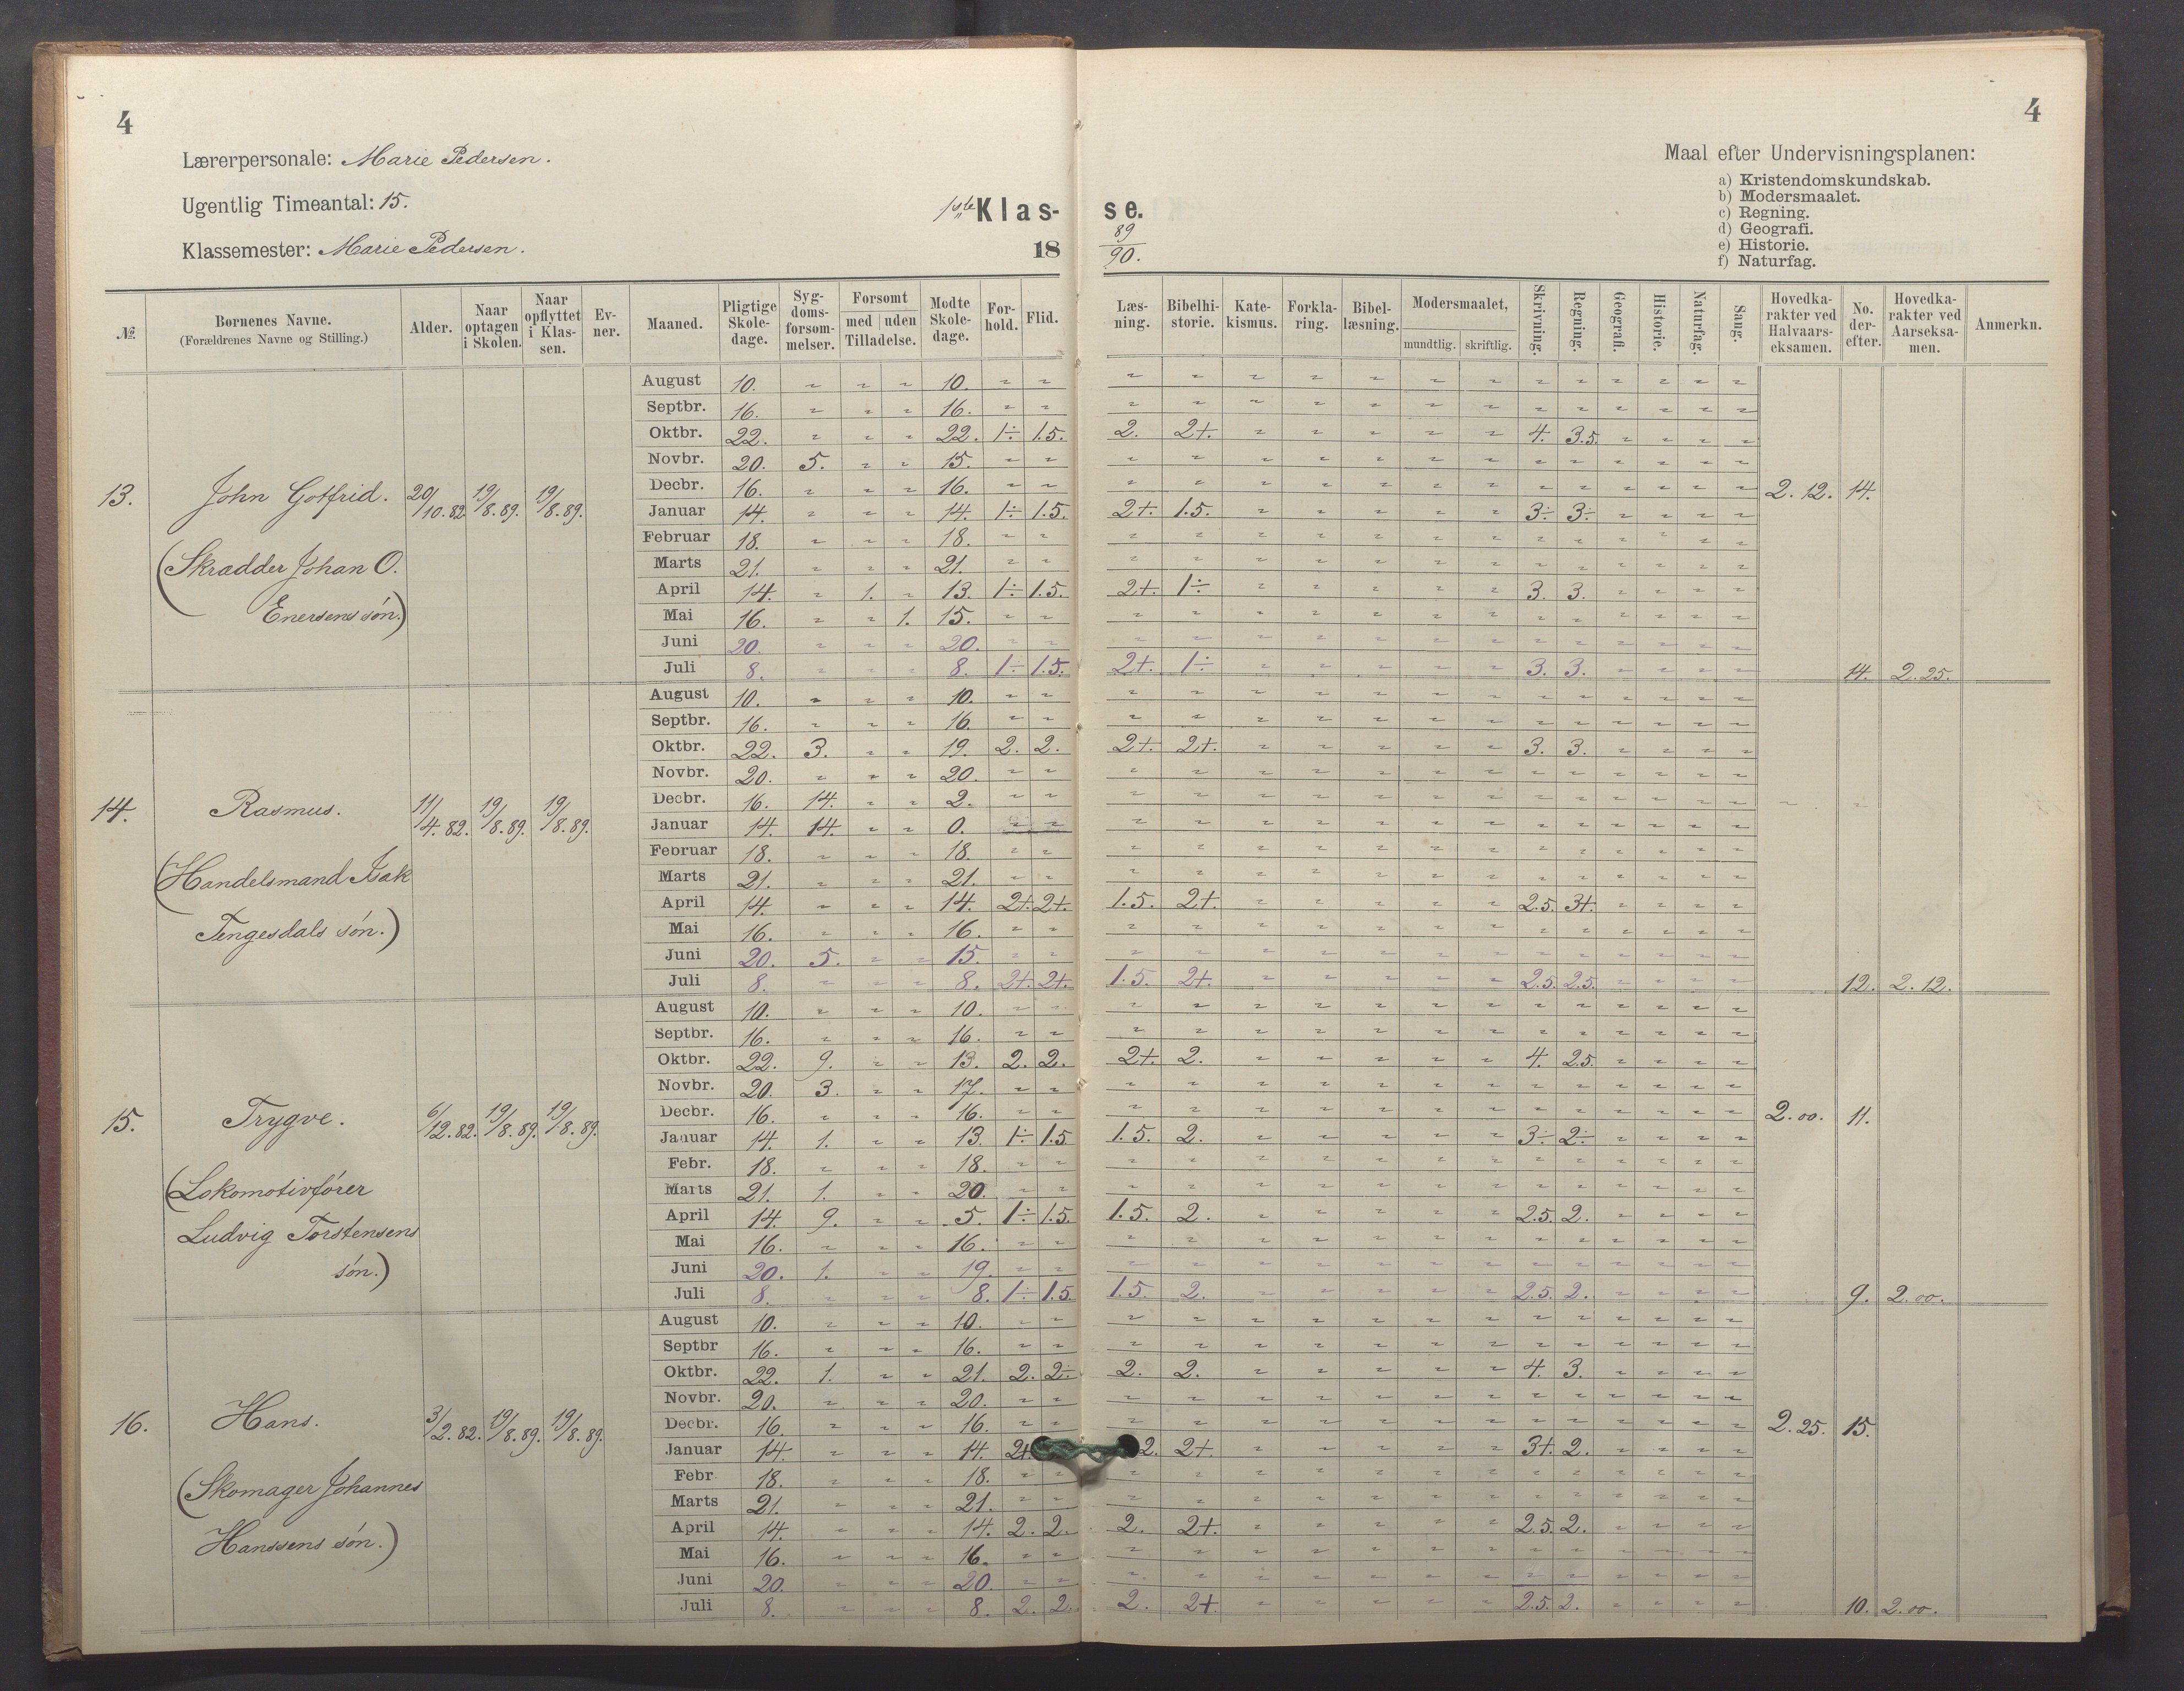 4
4
Lærerpersonale: Marie Pedersen.
Ugentlig Timeantal: 15.
Klassemester: Marie Pedersen.
1ste Klas- se.
18 89/90.
Maal efter Undervisningsplanen:
a) Kristendomskundskab.
b) Modersmaalet.
c) Regning.
d) Geografi.
e) Historie.
f) Naturfag.
№ | Børnenes Navne. (Forældrenes Navne og Stilling.) | Alder. | Naar optagen i Skolen. | Naar opflyttet i Klassen. | Evner. | Maaned. | Pligtige Skoledage. | Sygdomsforsømmelser. | Forsømt med | uden Tilladelse. | Mødte Skoledage. | Forhold. | Flid. | Læsning. | Bibelhistorie. | Katekismus. | Forklaring. | Bibellæsning. | Modersmaalet, mundtlig. | skriftlig. | Skrivning. | Regning. | Geografi. | Historie. | Naturfag. | Sang. | Hovedkarakter ved Halvaarseksamen. | No. derefter. | Hovedkarakter ved Aarseksamen. | Anmerkn.
13. John Gotfrid. 20/10.82. 19/8.89. 19/8.89.
(Skrædder Johan O.
Enersens søn.)
August 10. " " " 10. " "
Septbr. 16. " " " 16. " "
Oktbr. 22. " " " 22. 1÷ 1.5. 2. 2+. 4. 3.5.
Novbr. 20. 5. " " 15. " "
Decbr. 16. " " " 16. " " 2.12. 14.
Januar 14. " " " 14. 1÷ 1.5. 2+. 1.5. 3÷ 3÷
Februar 18. " " " 18. " "
Marts 21. " " " 21. " "
April 14. " 1. " 13. 1÷ 1.5. 2+. 1÷ 3. 3.
Mai 16. " " 1. 15. " "
Juni 20. " " " 20. " "
Juli 8. " " " 8. 1÷ 1.5. 2+. 1÷ 3. 3. 14. 2.25.
14. Rasmus. 11/4.82. 19/8.89. 19/8.89.
(Handelsmand Isak
Tengesdals søn.)
August 10. " " " 10. " "
Septbr. 16. " " " 16. " "
Oktbr. 22. 3. " " 19. 2. 2. 2+. 2+. 3. 3.
Novbr. 20. " " " 20. " "
Decbr. 16. 14. " " 2. " "
Januar 14. 14. " " 0. " "
Februar 18. " " " 18. " "
Marts 21. " " " 21. " "
April 14. " " " 14. 2+. 2+. 1.5. 2+. 2.5. 3+.
Mai 16. " " " 16. " "
Juni 20. 5. " " 15. " "
Juli 8. " " " 8. 2+. 2+. 1.5. 2+. 2.5. 2.5. 12. 2.12.
15. Trygve. 6/12.82. 19/8.89. 19/8.89.
(Lokomotivfører
Ludvig Torstensens
søn.)
August 10. " " " 10. " "
Septbr. 16. " " " 16. " "
Oktbr. 22. 9. " " 13. 2. 2. 2+. 2. 4. 2.5.
Novbr. 20. 3. " " 17. " "
Decbr. 16. " " " 16. " " 2.00. 11.
Januar 14. 1. " " 13. 1÷ 1.5 1.5. 2. 3÷ 2÷
Febr. 18. " " " 18. " "
Marts 21. 1. " " 20. " "
April 14. 9. " " 5. 1÷ 1.5. 1.5. 2. 2.5. 2.
Mai 16. " " " 16. " "
Juni 20. 1. " " 19. " "
Juli 8. " " " 8. 1÷ 1.5. 1.5. 2. 2.5. 2. 9. 2.00.
16. Hans. 3/2.82. 19/8.89. 19/8.89.
(Skomager Johannes
Hanssens søn.)
August 10. " " " 10. " "
Septbr 16. " " " 16. " "
Oktbr. 22. 1. " " 21. 2. 2÷ 2. 2. 4. 3.
Novbr. 20. " " " 20. " "
Decbr. 16. " " " 16. " " 2.25. 15.
Januar 14. " " " 14. 2+ 2. 2+. 3+. 2.
Febr. 18. " " " 18. " "
Marts 21. " " " 21. " "
April 14. " " " 14. 2. 2. 2. 2+. 2.5. 2.
Mai 16. " " " 16. " "
Juni 20. " " " 20. " "
Juli 8. " " " 8. 2. 2. 2. 2+. 2.5. 2. 10. 2.00.